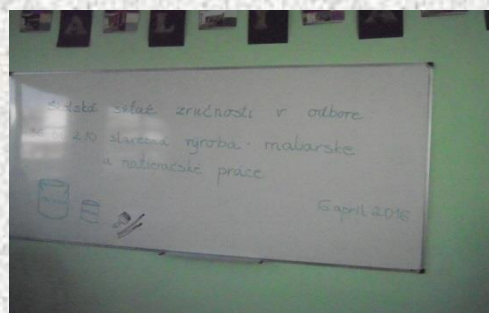 A L I A
súťaž zručnosti v odbore
stavebná výroba - maliarske
a natieračské práce
6 apríl 2016